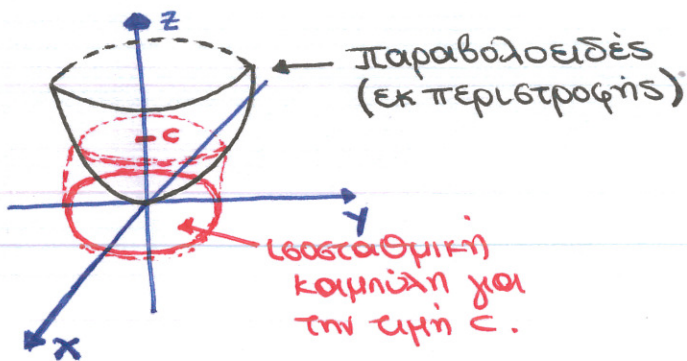 z
παραβολοειδές
(εκ περιστροφής)
c
y
ισοσταθμική
καμπύλη για
την τιμή c.
x